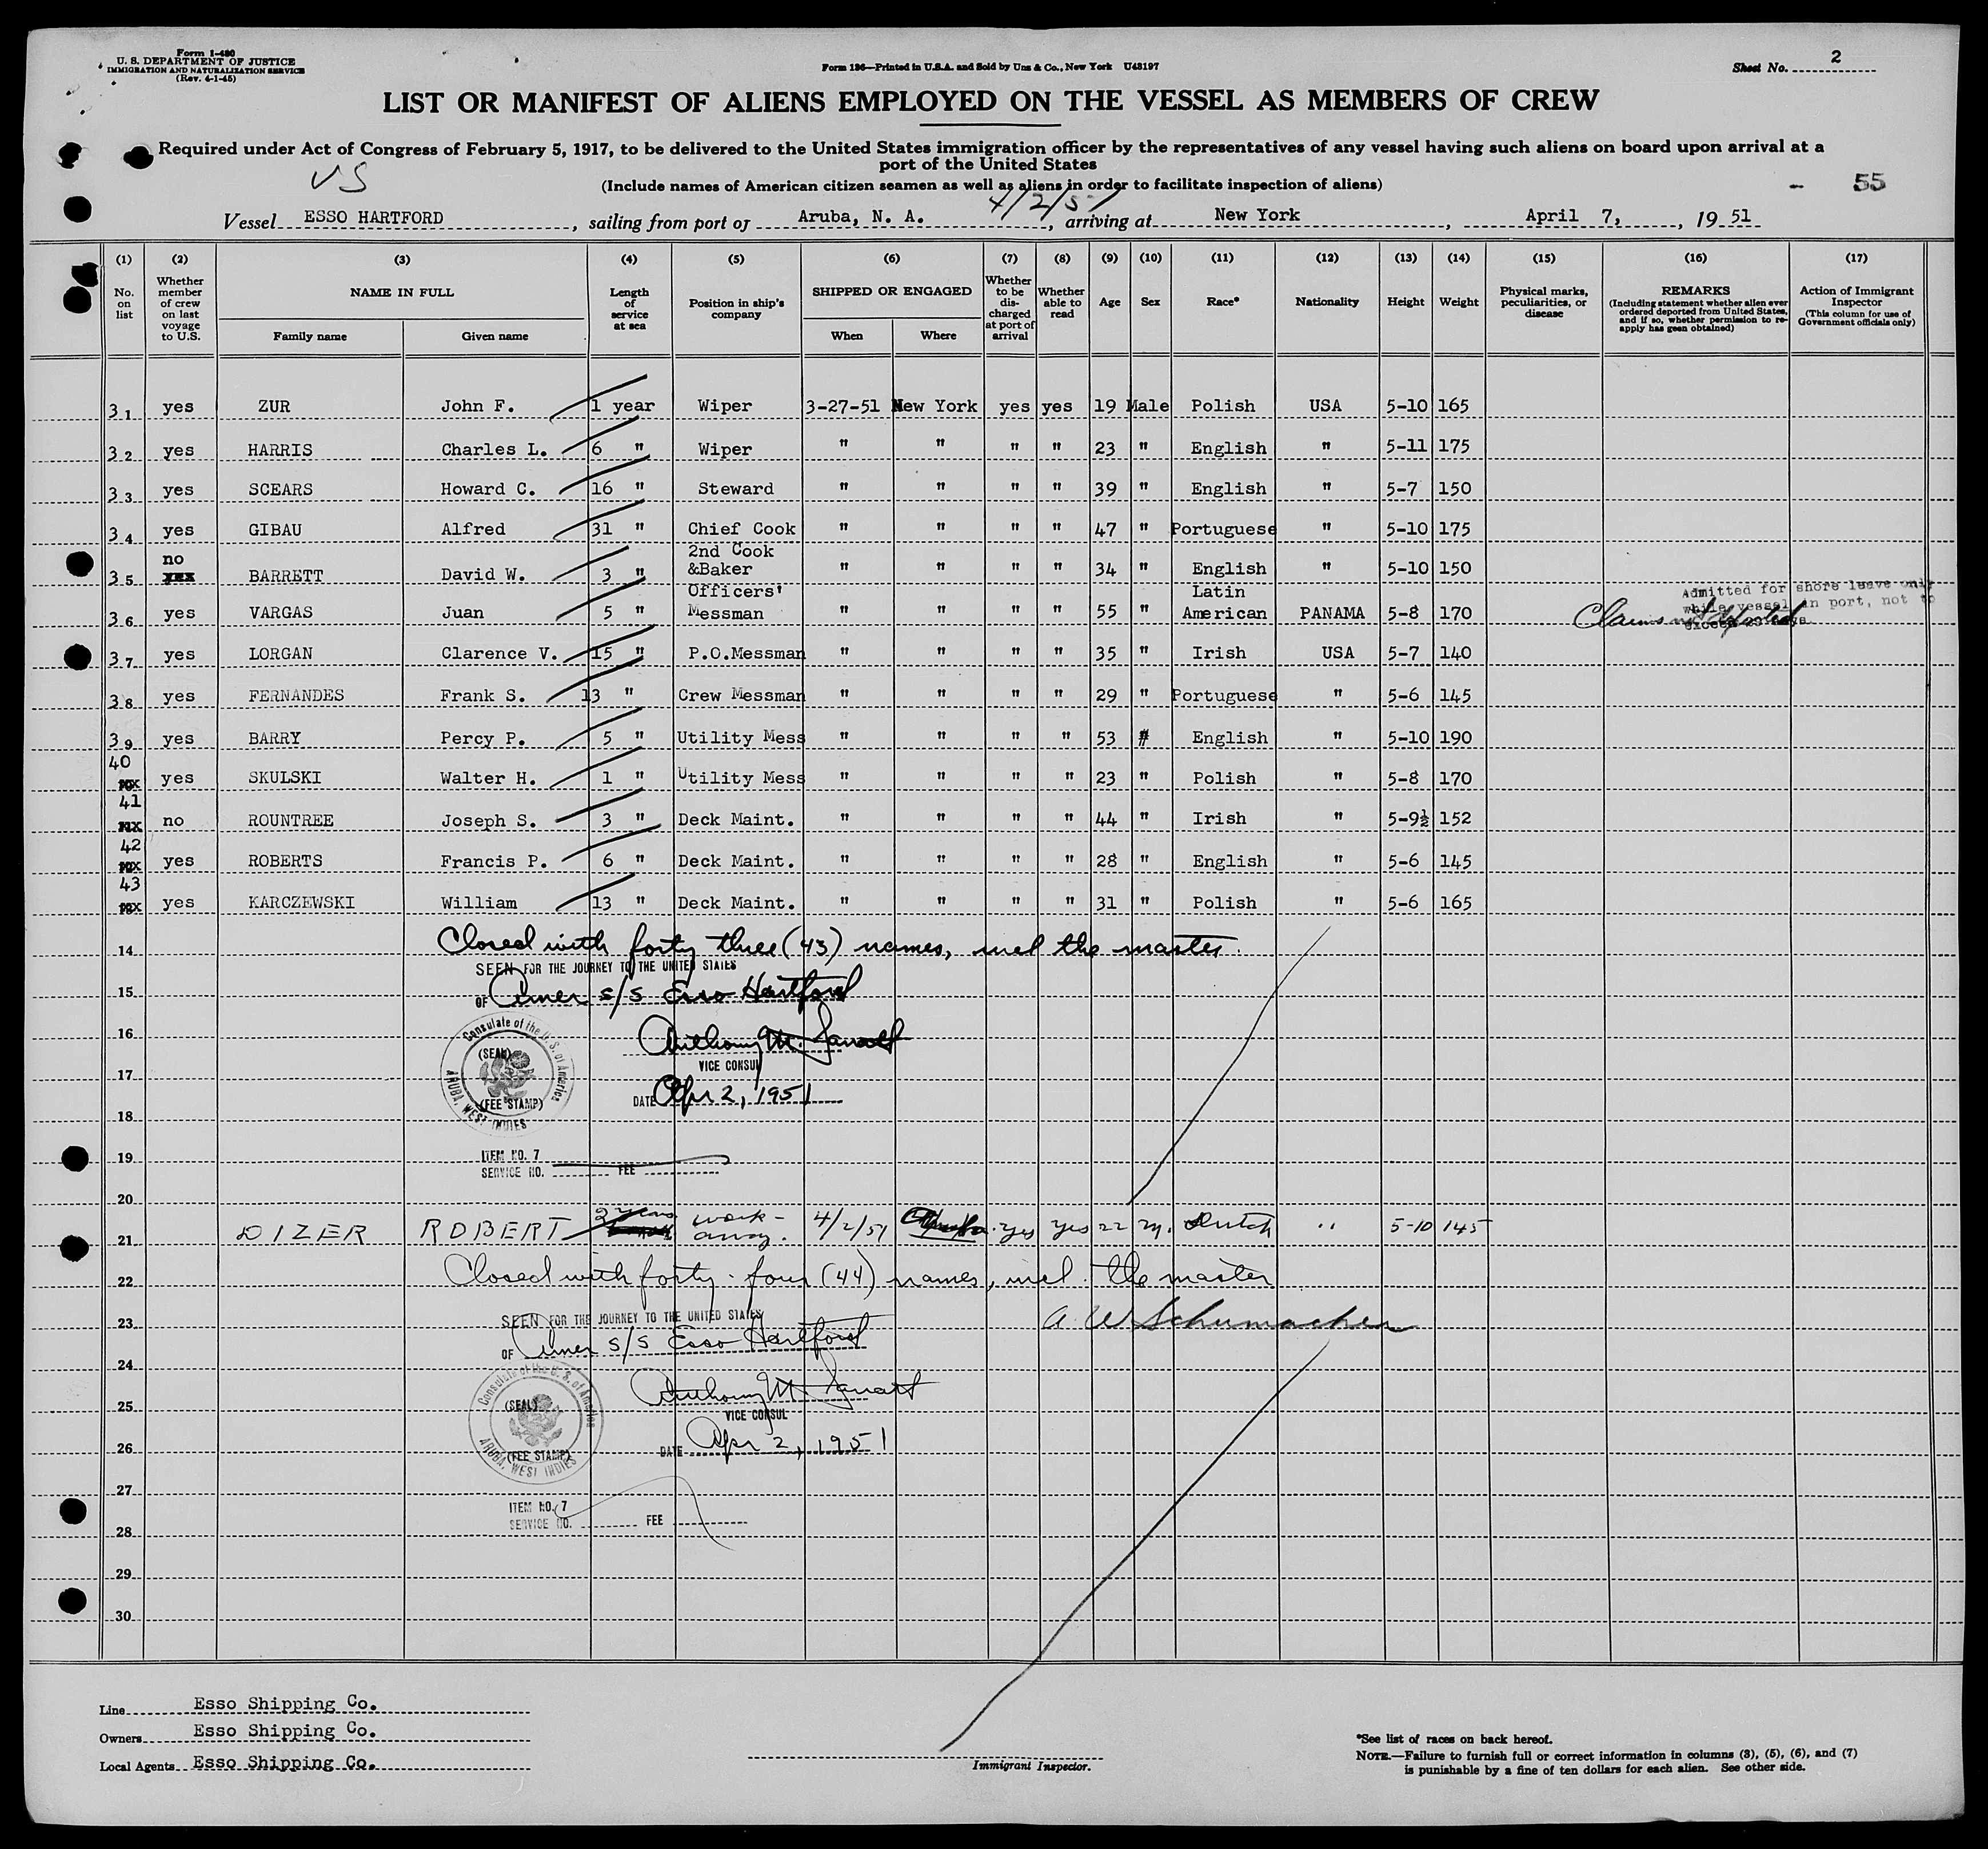 Form I-480
U. S. DEPARTMENT OF JUSTICE
IMMIGRATION AND NATURALIZATION SERVICE
(Rev. 4-1-45)
Form 136—Printed in U.S.A. and Sold by Unz & Co., New York U48197
Sheet No. 2
LIST OR MANIFEST OF ALIENS EMPLOYED ON THE VESSEL AS MEMBERS OF CREW
Required under Act of Congress of February 5, 1917, to be delivered to the United States immigration officer by the representatives of any vessel having such aliens on board upon arrival at a
port of the United States
VS
(Include names of American citizen seamen as well as aliens in order to facilitate inspection of aliens)
- 55
4/2/51
Vessel ESSO HARTFORD, sailing from port of Aruba, N. A., arriving at New York, April 7, 19 51
(1) (2) (3) (4) (5) (6) (7) (8) (9) (10) (11) (12) (13) (14) (15) (16) (17)
No. on list
Whether member of crew on last voyage to U.S.
NAME IN FULL
Family name Given name
Length of service at sea
Position in ship's company
SHIPPED OR ENGAGED
When Where
Whether to be discharged at port of arrival
Whether able to read
Age Sex Race* Nationality Height Weight
Physical marks, peculiarities, or disease
REMARKS
(Including statement whether alien ever ordered deported from United States, and if so, whether permission to re-apply has geen obtained)
Action of Immigrant Inspector
(This column for use of Government officials only)
31 yes ZUR John F. 1 year Wiper 3-27-51 New York yes yes 19 Male Polish USA 5-10 165
32 yes HARRIS Charles L. 6 " Wiper " " " " 23 " English " 5-11 175
33 yes SCEARS Howard C. 16 " Steward " " " " 39 " English " 5-7 150
34 yes GIBAU Alfred 31 " Chief Cook " " " " 47 " Portuguese " 5-10 175
35 no yes BARRETT David W. 3 " 2nd Cook &Baker " " " " 34 " English " 5-10 150
36 yes VARGAS Juan 5 " Officers' Messman " " " " 55 " Latin American PANAMA 5-8 170
Admitted for shore leave only
while vessel in port, not to
exceed 29 days
Claims not deported
37 yes LORGAN Clarence V. 15 " P.O.Messman " " " " 35 " Irish USA 5-7 140
38 yes FERNANDES Frank S. 13 " Crew Messman " " " " 29 " Portuguese " 5-6 145
39 yes BARRY Percy P. 5 " Utility Mess " " " " 53 # English " 5-10 190
40 yes SKULSKI Walter H. 1 " Utility Mess " " " " 23 " Polish " 5-8 170
41 no ROUNTREE Joseph S. 3 " Deck Maint. " " " " 44 " Irish " 5-9½ 152
42 yes ROBERTS Francis P. 6 " Deck Maint. " " " " 28 " English " 5-6 145
43 yes KARCZEWSKI William 13 " Deck Maint. " " " " 31 " Polish " 5-6 165
14 Closed with forty three (43) names, incl the master.
SEEN FOR THE JOURNEY TO THE UNITED STATES
15 OF Amer s/s Esso Hartford
Consulate of the U. S. of America
ARUBA, WEST INDIES
(SEAL)
(FEE STAMP)
16 Anthony M.
VICE CONSUL
17
DATE Apr 2, 1951
18
ITEM NO. 7
19
SERVICE NO. FEE
20
21 DIZER ROBERT 2 years work-away. 4/2/51 Aruba yes yes 22 M. Dutch " 5-10 145
22 Closed with forty-four (44) names, incl. the master
SEEN FOR THE JOURNEY TO THE UNITED STATES
23 A W Schumacher
OF Amer s/s Esso Hartford
24
Consulate of the U. S. of America
ARUBA, WEST INDIES
(SEAL)
(FEE STAMP)
Anthony M.
25
VICE CONSUL
26
DATE Apr 2, 1951
27
ITEM NO. 7
SERVICE NO. FEE
28
29
30
Line Esso Shipping Co.
Owners Esso Shipping Co.
Local Agents Esso Shipping Co.
Immigrant Inspector.
*See list of races on back hereof.
NOTE.—Failure to furnish full or correct information in columns (3), (5), (6), and (7)
is punishable by a fine of ten dollars for each alien. See other side.